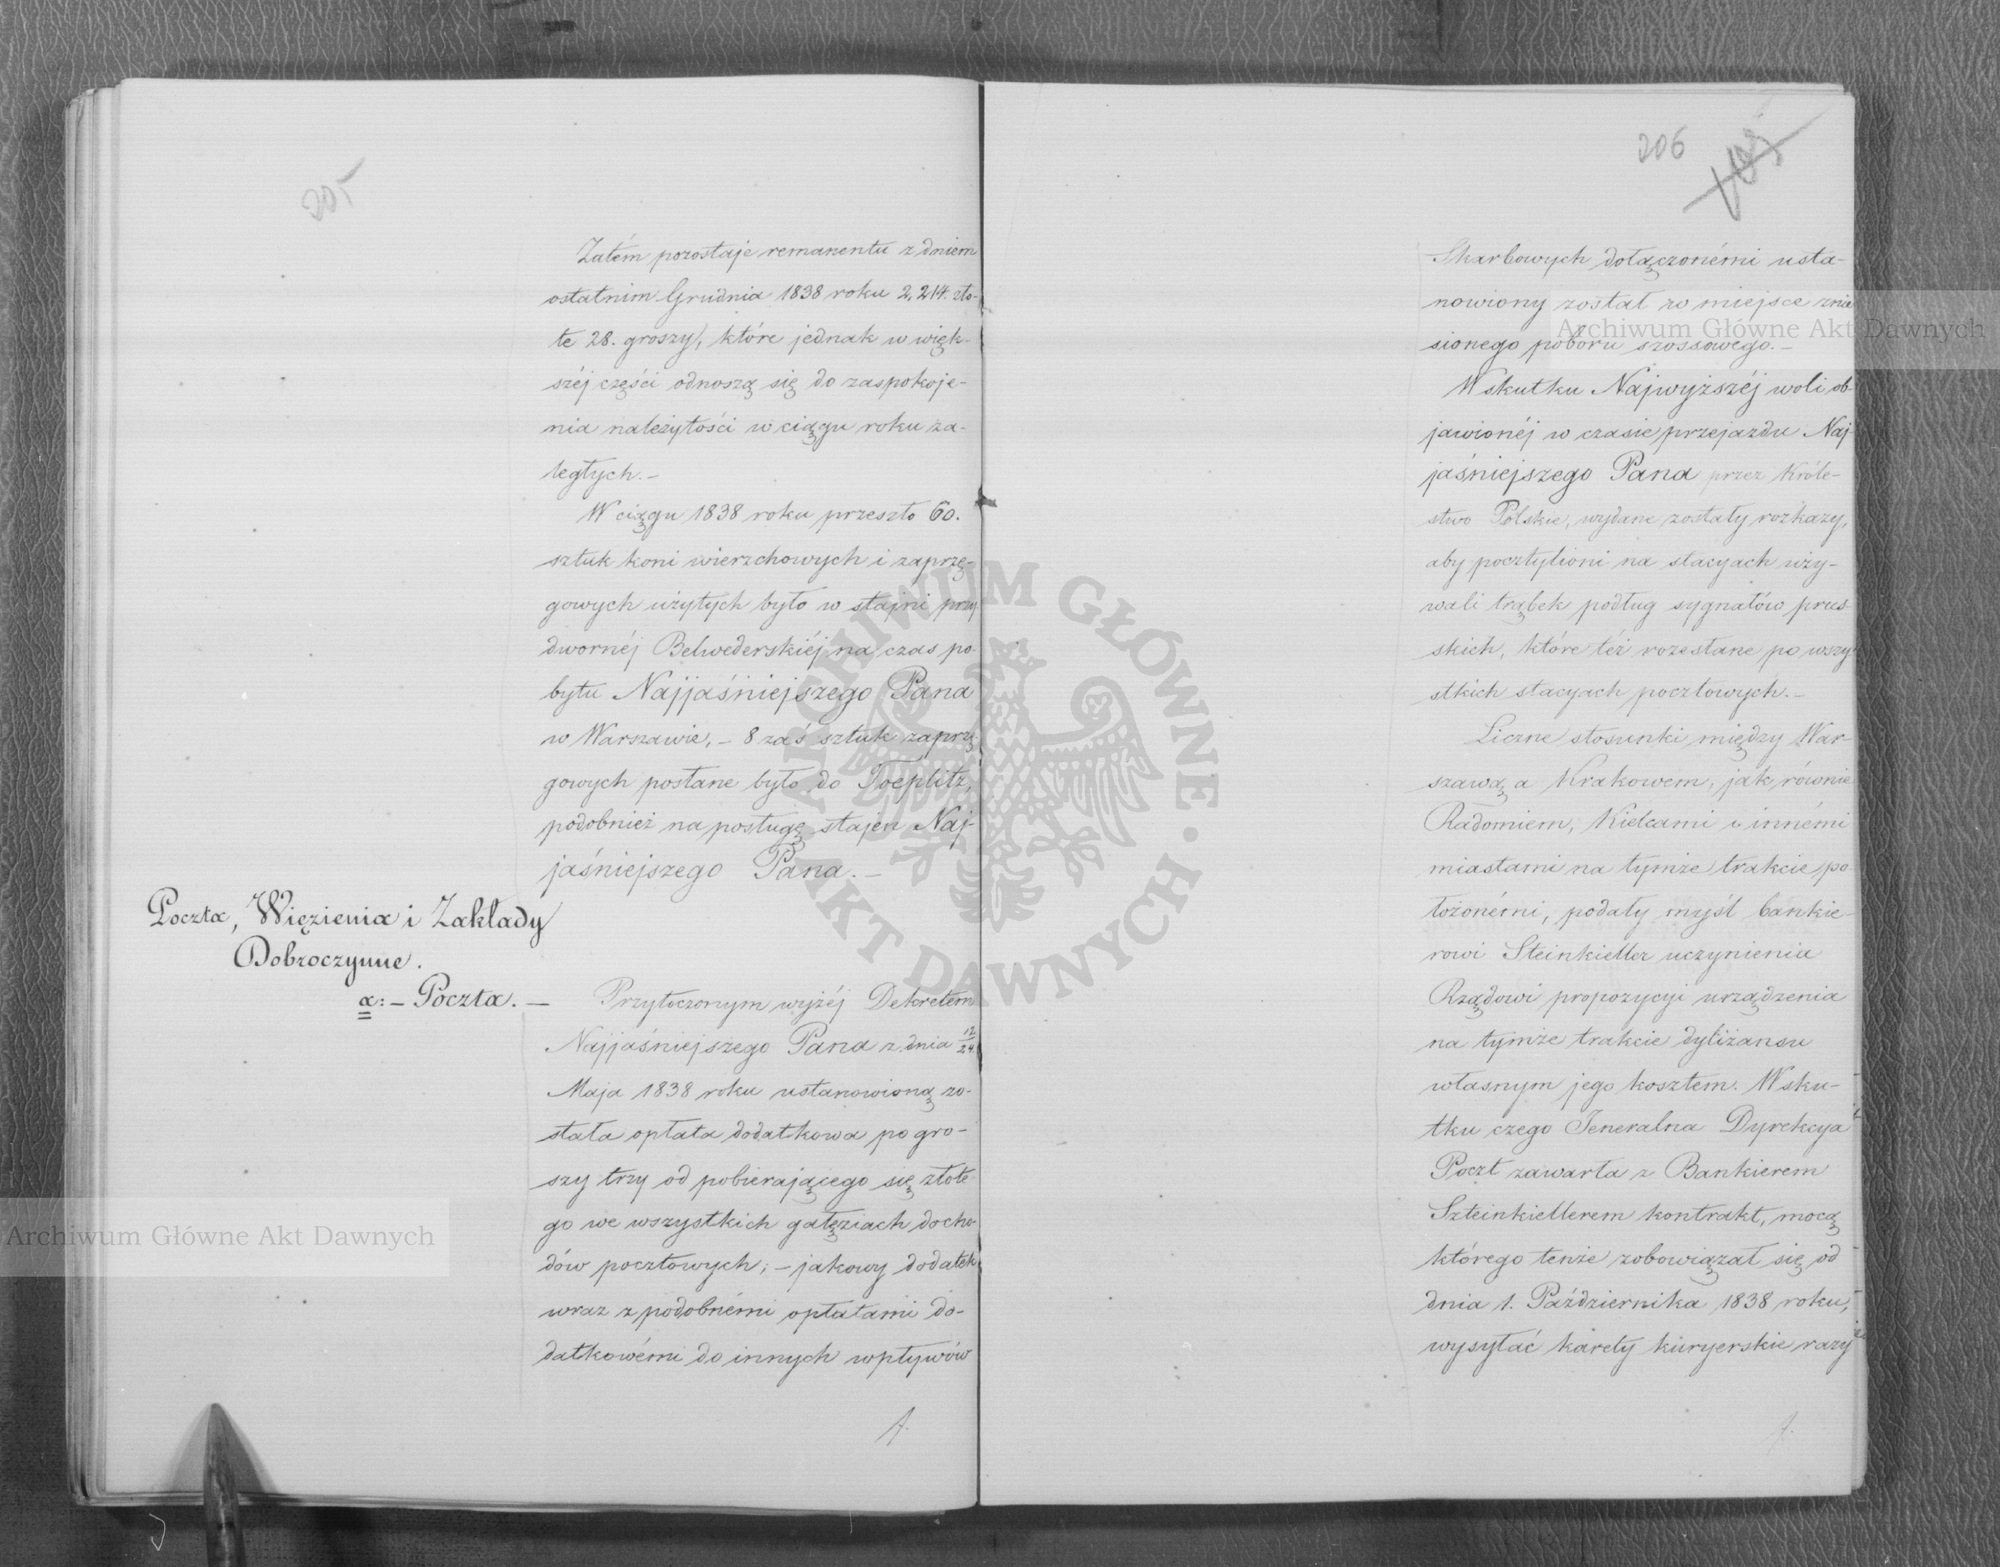 205
Zatém pozostaje remanentu z dniem
ostatnim Grudnia 1838 roku 2,214. zło-
te 28. groszy, które jednak w więk-
széj części odnoszą się do zaspokoje-
nia należytości w ciągu roku za-
ległych.-
W ciągu 1838 roku przeszło 60.
sztuk koni wierzchowych i zaprzę-
gowych użytych było w stajni przy
dwornéj Belwederskiéj na czas po-
bytu Najjaśniejszego Pana
w Warszawie, - 8 zaś sztuk zaprzę
gowych posłane było do Toeplitz,
podobnież na posługę stajen Naj-
jaśniejszego Pana.-
Poczta, Więzienia i Zakłady
Dobroczynne.
a:- Poczta.-
Przytoczonym wyżéj Dekretem
Najjaśniejszego Pana z dnia 12/24.
Maja 1838 roku ustanowioną zo-
stała opłata dodatkowa po gro-
szy trzy od pobierającego się złote
go we wszystkich gałęziach docho-
dów pocztowych; - jakowy dodatek
wraz z podobnémi opłatami do-
datkowémi do innych wpływów
206
Skarbowych dołączonémi usta-
nowiony został w miejsce znie
sionego poboru szossowego.-
W skutku Najwyższéj woli ob-
jawionéj w czasie przejazdu Naj-
jaśniejszego Pana przez Króle-
stwo Polskie, wydane zostały rozkazy,
aby pocztylioni na stacyach uży-
wali trąbek podług sygnałów prus-
skich, które téż rozesłane po wszy-
stkich stacyach pocztowych.-
Liczne stosunki między War-
szawą a Krakowem, jak równie
Radomiem, Kielcami i innémi
miastami na tymże trakcie po-
łożonémi, podały myśl bankie-
rowi Steinkieller uczynienia
Rządowi propozycyi urządzenia
na tymże trakcie dyliżansu
własnym jego kosztem. W sku-
tku czego Jeneralna Dyrekcya
Poczt zawarła z Bankierem
Szteinkiellerem kontrakt, mocą
którego tenże zobowiązał się od
dnia 1. Października 1838 roku,
wysyłać karety kuryerskie razy
Archiwum Główne Akt Dawnych
Archiwum Główne Akt Dawnych
ARCHIWUM GŁÓWNE
AKT DAWNYCH